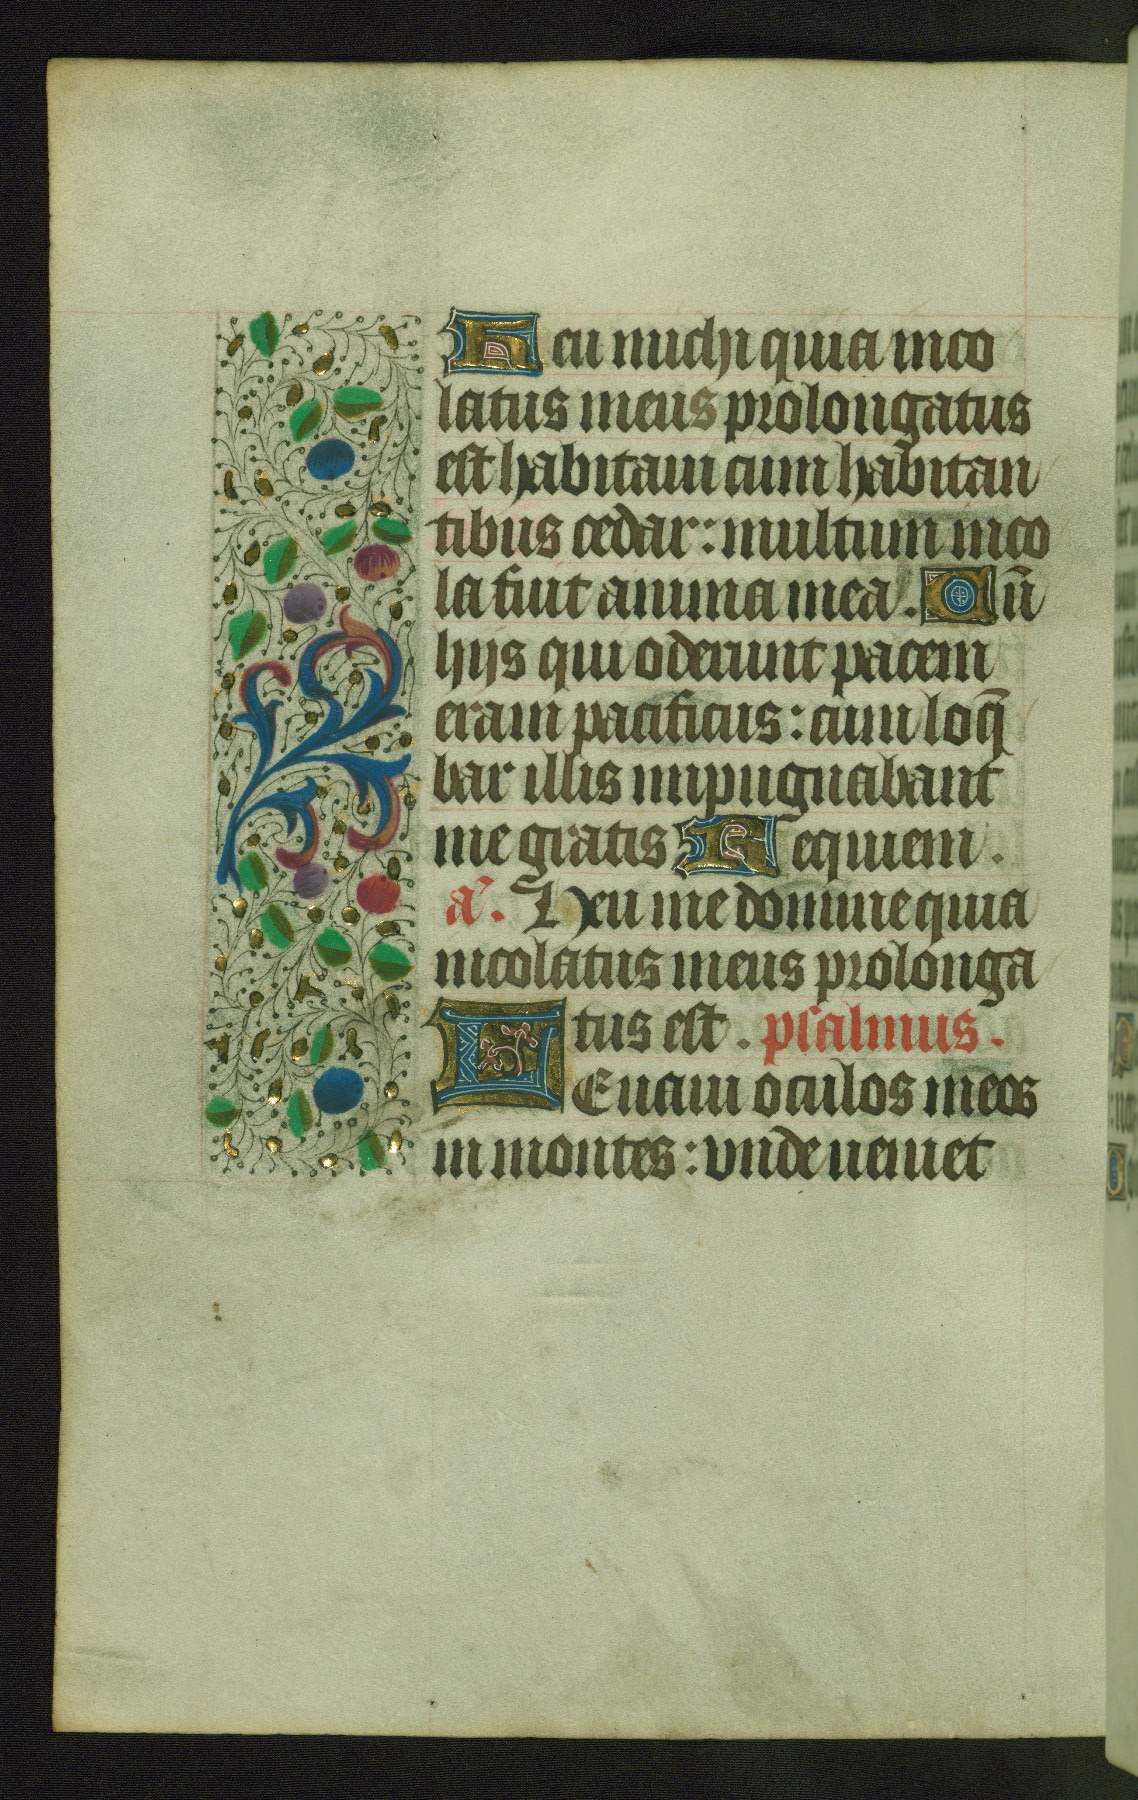 Heu michi quia inco
latus meus prolongatus
est habitaui cum habitan
tibus cedar: multum inco
la fuit anima mea. Cū
hijs qui oderunt pacem
eram pacificus: cum loq̄
bar illis impugnabant
me gratis Requiem.
a͞. Heu me domine quia
incolatus meus prolonga
tus est. psalmus.
LEuaui oculos meos
in montes: vnde ueniet